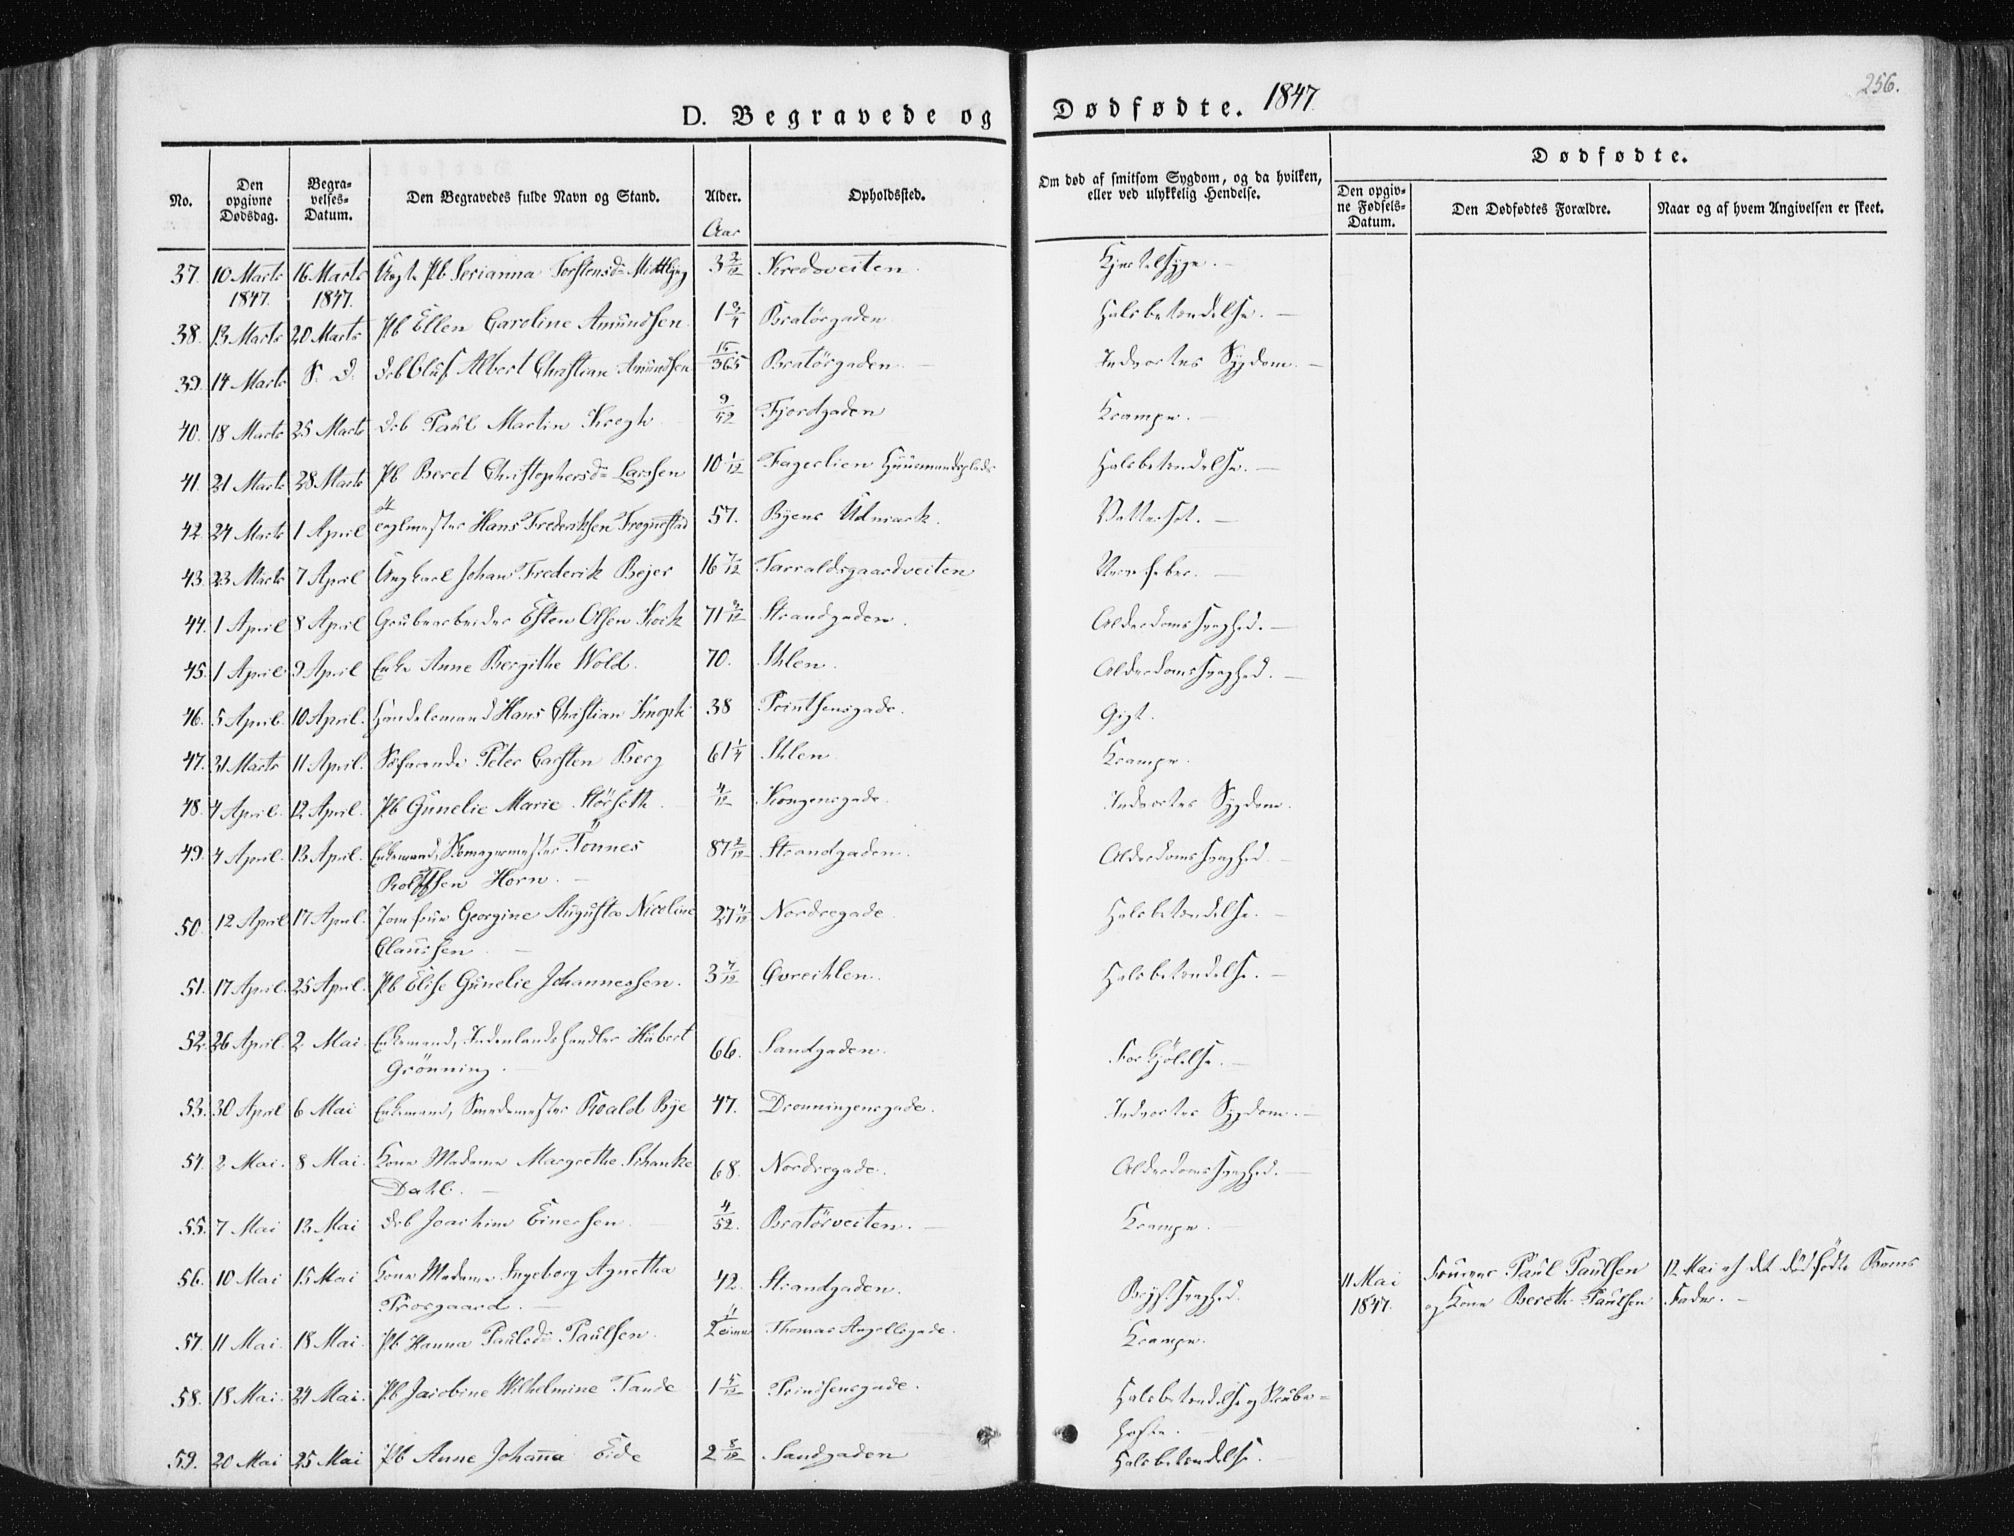 256.
D. Begravede og Dødfødte. 1847.
No. Den opgivne Dødsdag. Begravelses-Datum. Den Begravedes fulde Navn og Stand. Alder. Opholdssted. Om død af smitsom Sygdom, og da hvilken, eller ved ulykkelig Hendelse. Dødfødte.
Den opgivne Fødsels-Datum. Den Dødfødtes Forældre. Naar og af hvem Angivelsen er skeet.
Aar
37. 10 Marts 1847. 16 Marts 1847. Pb Serianna Torstensd= 3 2/12 Kjertelsyge. —
38. 13 Marts 20 Marts Pb Ellen Caroline Amundsen 1 3/4 Bratörgaden Halsbetændelse. —
39. 14 Marts S. D. Drb Oluf Albert Christian Amundsen 15/365 Bratörgaden. Indvortes Sygdom. —
40. 18 Marts 25 Marts Drb Paul Martin Krogh 9/52 Fjordgaden Krampe. —
41. 21 Marts 28 Marts Pb Beret Christophersd= Larssen 10 1/12 Fagerlien Huusmandsplads Halsbetændelse. —
42. 24 Marts 1 April Hans Frederiksen Trognestad 57. Byens Udmark. Vattersot. —
43. 23 Marts 7 April Ungkarl Johan Frederik Bejer 16 7/12 Tarraldsgaardveiten Nervefeber. —
44. 1 April 8 April Grubearbeider Esten Olsen 71 Strandgaden. Alderdomssvaghed. —
45. 1 April 9 April Enke Anne Bergithe Wold. 70. Ihlen. Alderdomssvaghed. —
46. 5 April. 10 April. Handelsmand Hans Christian 38 Printsensgade. Gigt.
47. 31 Marts 11 April. Söfarende Peter Carsten Berg 61 1/4 Ihlen Krampe.
48. 4 April. 12 April. Pb Gunelie Marie Störseth 4/12 Kongensgade. Indvortes Sygdom.
49. 4 April. 13 April. Enkemand, Skomagermester Tönnes Rolfsen Horn. — 87 2/12 Strandgaden. Alderdomssvaghed
50. 12 April 17 April. Jomfrue Georgine Augusta Nicoline Claussen — 27 Nordregade Halsbetændelse. —
51. 17 April. 25 April. Pb Elise Gunelie Johannessen. 3 7/12 Övreihlen. Halsbetændelse. —
52. 26 April. 2 Mai. Enkemand, Indenlandshandler Hubert Grönning. — 66. Sandgaden. Forkjölelse. —
53. 30 April 6 Mai Enkemand, Smedemester Roald Bye 47. Dronningensgade. Indvortes Sygdom. —
54. 2 Mai. 8 Mai. Kone Madame Margrethe Schanke Dahl. — 68. Nordregade. Alderdomssvaghed. —
55. 7 Mai 13 Mai Drb Joachim Einersen 4/52. Bratörveiten. — Krampe.
56. 10 Mai 15 Mai Kone Madame Ingeborg Agnetha — 42. Strandgaden. Brystsvaghed. 11 Mai 1847. Paul Paulsen og Kone Bereth Paulsen 12 Mai af det dödfödte Barns Fader. —
57. 11 Mai. 18 Mai. Pb Hanna Paulsd= Paulsen. Thomas Angellsgade. Krampe.
58. 18 Mai. 24 Mai. Pb Jacobine Wilhelmine Tande 1 5/12 Prindsensgade. Halsbetændelse og Strubehoste. —
59. 20 Mai 25 Mai Pb Anne Johanna Eide 2 8/12 Sandgaden Halsbetændelse.